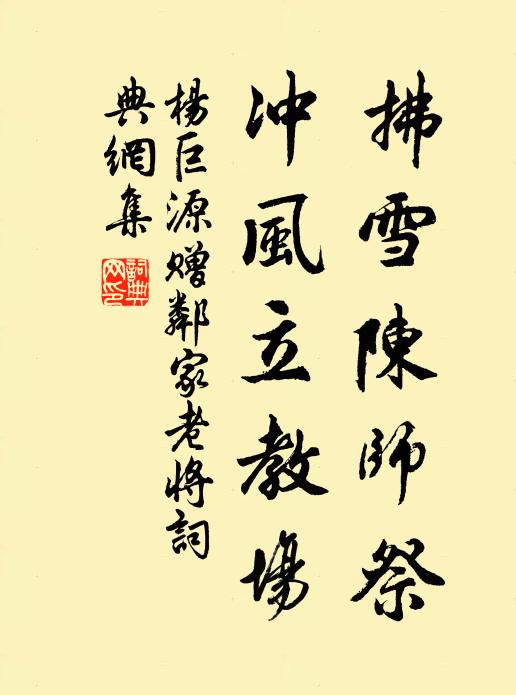 拂雪陳師祭
冲風立教場
楊巨源赠鄰家老將詞
典網集
詞典
网印